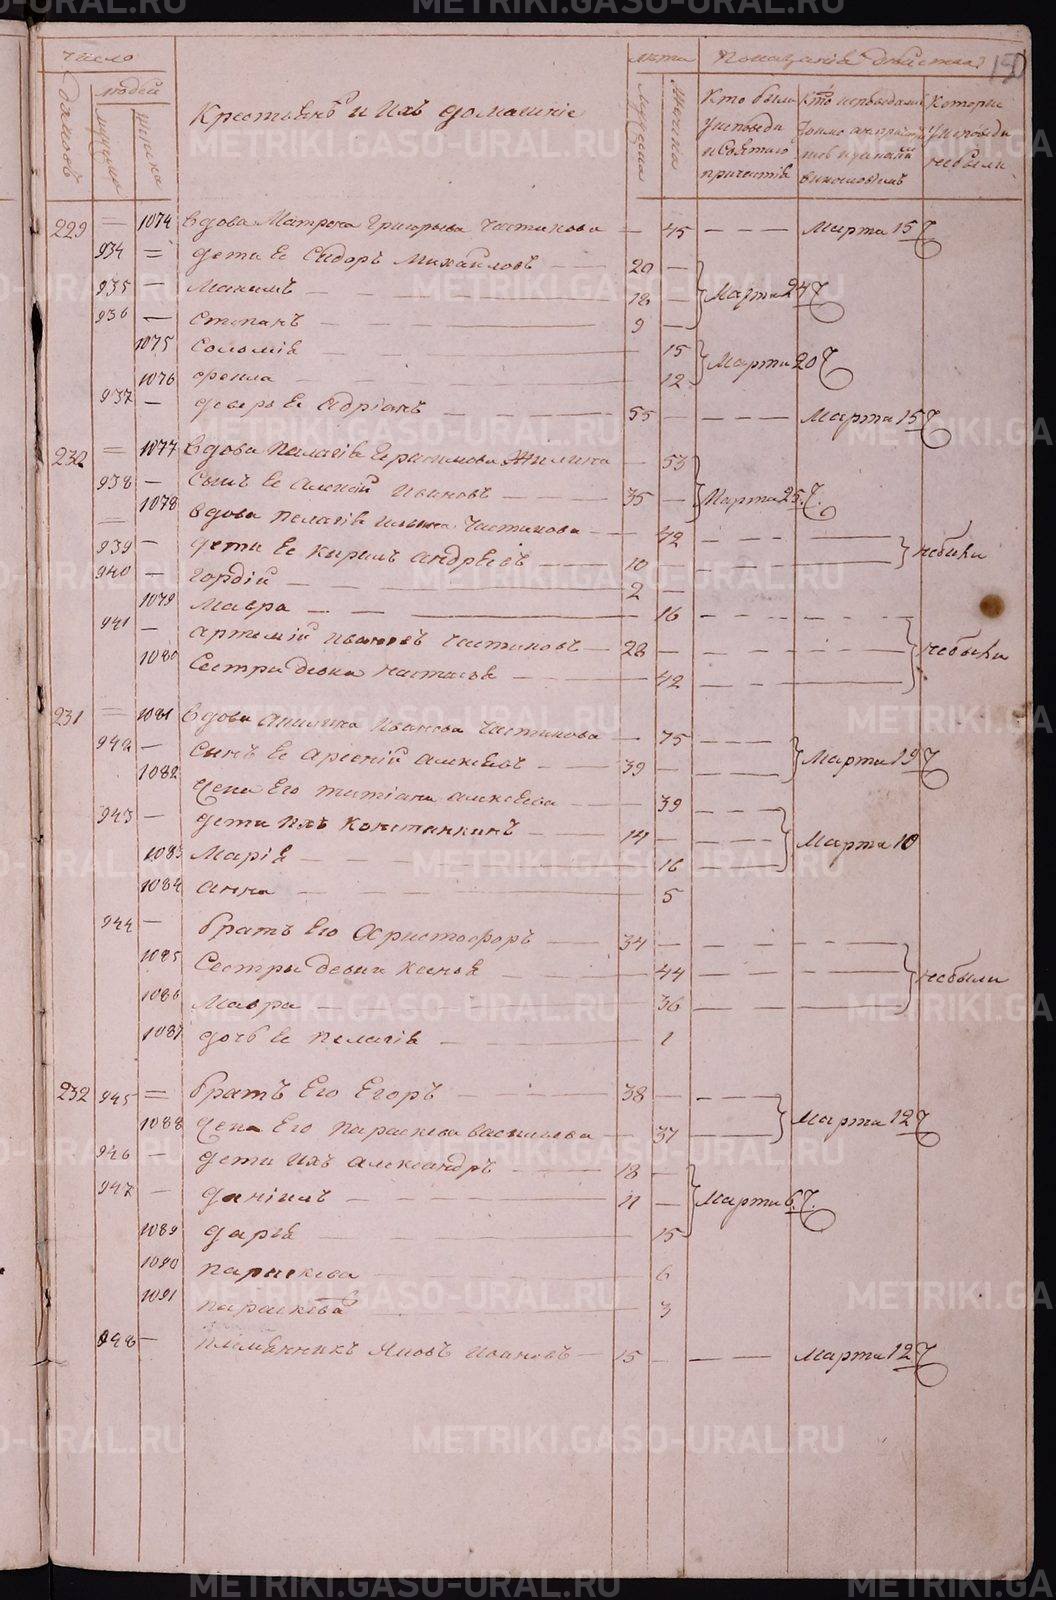 число
лѣта
Показанія дѣйства
150
домовъ
людей
мужеска
женска
Крестьянъ и ихъ домашніе
мужеска
женска
Кто были у исповѣди и святаго причастія
Кто исповѣдались
Которые у исповѣди не были
229 = 1074 вдова Матрона Григорьева Частикова — 45 — — — Марта 15
934 = дети ее Сидоръ Михайловъ — 20 —
935 — Максимъ — 18 — Марта 24
936 — Степанъ — 9 —
1075 Соломія — 15
1076 Фекла — 12 Марта 20
937 — деверь ее Адріанъ — 55 — Марта 15
230 = 1077 вдова Пелагія Герасимова Жилина — 53
938 — сынъ ее Алексій Ивановъ — 35 — Марта 25
1078 вдова Пелагія Ильина Частикова — 42
939 — дети ее Кирилъ Андреевъ — 10 — небыли
940 — Гордій — 2 —
1079 Мавра — 16
941 — Артемій Ивановъ Частиковъ — 28 — небыли
1080 Сестра девка Настасья — 42
231 = 1081 вдова Акилина Иванова Частикова — 75
942 — сынъ ее Арсеній Алексеевъ — 39 — Марта 19
1082 жена его Татіана Алексеева — 39
943 — дети ихъ Константинъ — 14 — Марта 10
1083 Марія — 16
1084 Анна — 5
944 — братъ его Христофоръ — 34 —
1085 Сестры девки Ксенья — 44 небыли
1086 Мавра — 36
1087 дочь ее Пелагія — 1
232 945 = братъ его Егоръ — 38 —
1088 жена его Параскева Васильева — 37 Марта 12
946 — дети ихъ Александръ — 18 —
947 — Даніилъ — 11 — Марта 6
1089 Дарья — 15
1090 Параскева — 6
1091 Параскева — 3
948 — племянникъ Яковъ Ивановъ — 15 — Марта 12
METRIKI.GASO-URAL.RU